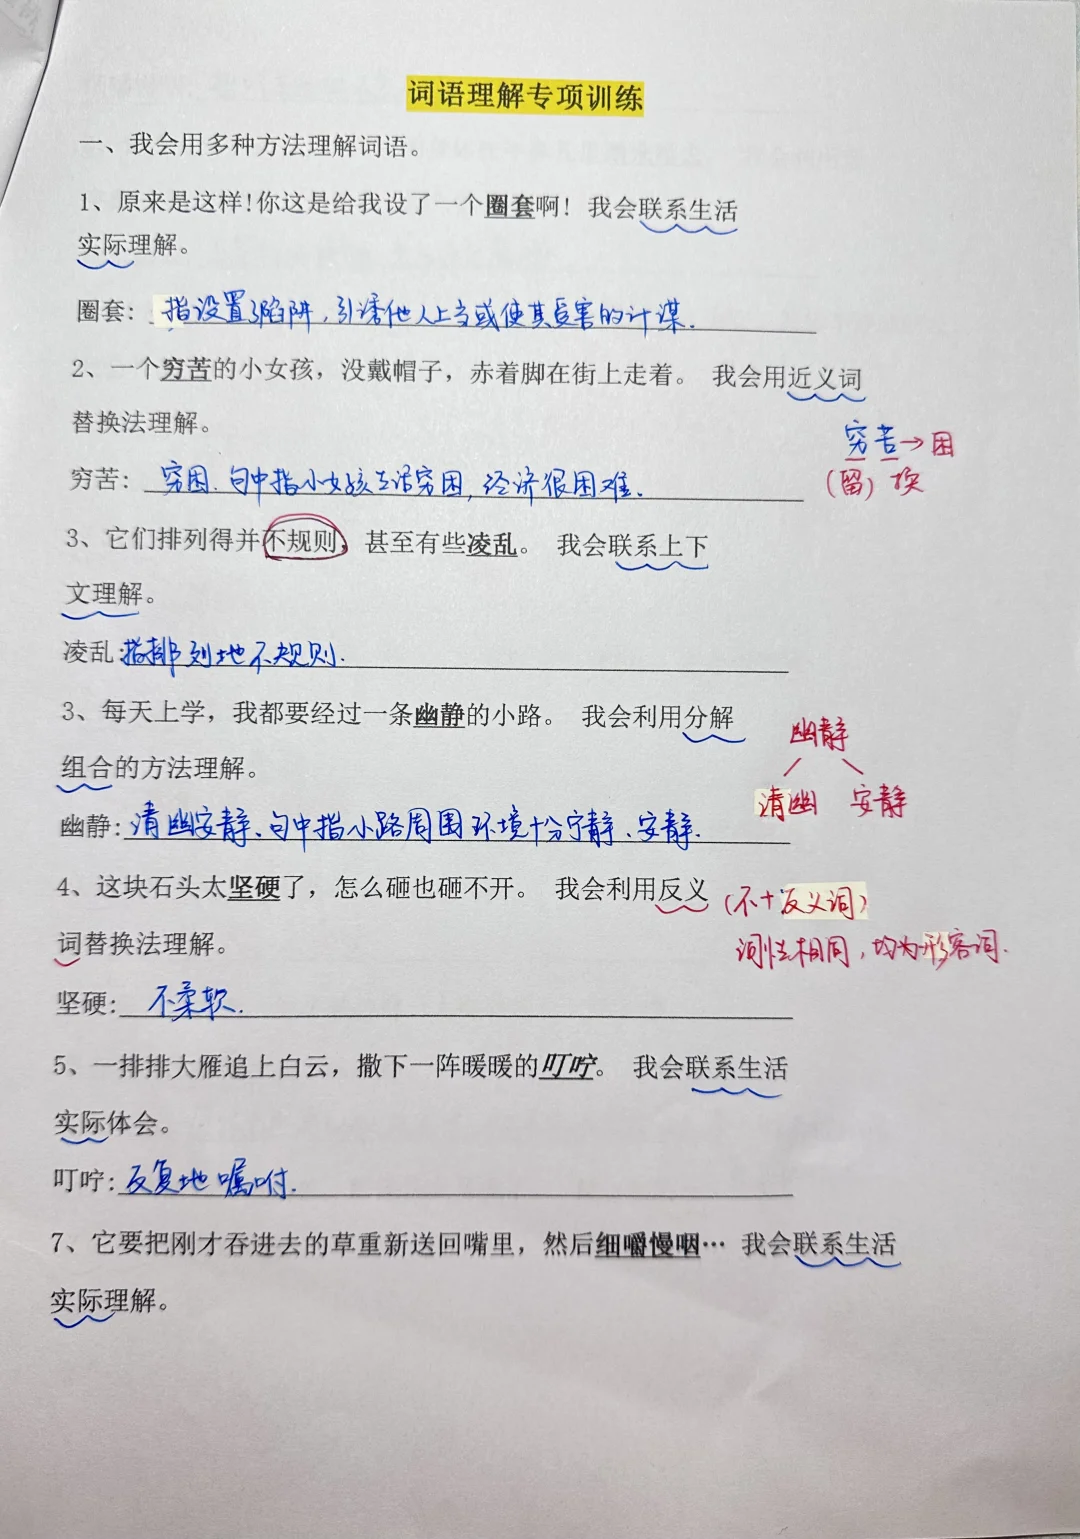 词语理解专项训练
一、我会用多种方法理解词语。
1、原来是这样!你这是给我设了一个圈套啊! 我会联系生活
实际理解。
圈套: 指设置了陷阱,引诱他人上当或使其受害的计谋.
2、一个穷苦的小女孩,没戴帽子,赤着脚在街上走着。 我会用近义词
替换法理解。
穷苦→困
(留) 换
穷苦: 穷困.句中指小女孩生活穷困,经济很困难.
3、它们排列得并不规则,甚至有些凌乱。 我会联系上下
文理解。
凌乱:指排列地不规则.
3、每天上学,我都要经过一条幽静的小路。 我会利用分解
组合的方法理解。
幽静
清幽 安静
幽静:清幽安静、句中指小路周围环境十分宁静、安静.
4、这块石头太坚硬了,怎么砸也砸不开。 我会利用反义
词替换法理解。
(不+反义词)
词性相同,均为形容词.
坚硬: 不柔软.
5、一排排大雁追上白云,撒下一阵暖暖的叮咛。 我会联系生活
实际体会。
叮咛:反复地嘱咐.
7、它要把刚才吞进去的草重新送回嘴里,然后细嚼慢咽… 我会联系生活
实际理解。